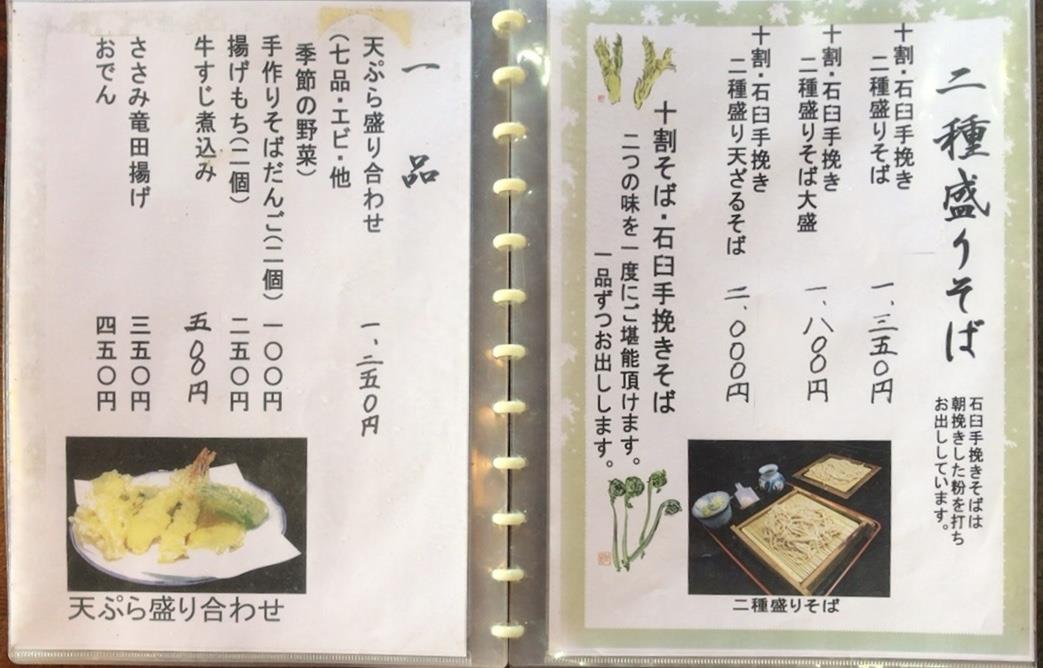 二種盛りそば
石臼手挽きそばは
朝挽きした粉を打ち
お出ししています。
十割・石臼手挽き
二種盛りそば 一、三五〇円
十割・石臼手挽き
二種盛りそば大盛 一、八〇〇円
十割・石臼手挽き
二種盛り天ざるそば 二、〇〇〇円
十割そば・石臼手挽きそば
二つの味を一度にご堪能頂けます。
一品ずつお出しします。
二種盛りそば
一品
天ぷら盛り合わせ 一、二五〇円
(七品・エビ・他
季節の野菜)
手作りそばだんご(二個) 一〇〇円
揚げもち(二個) 二五〇円
牛すじ煮込み 五〇〇円
ささみ竜田揚げ 三五〇円
おでん 四五〇円
天ぷら盛り合わせ